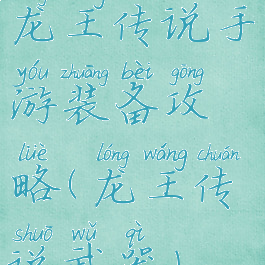 龙王传说手
yóu zhuāng bèi gōng
游装备攻
lüè lóng wáng chuán
略(龙王传
shuō wǔ qì
说武器)